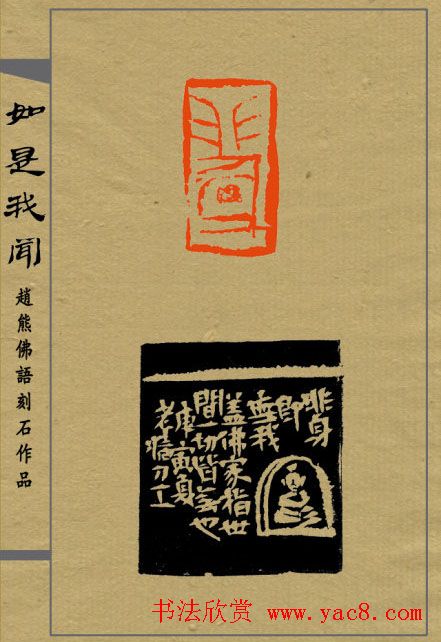 如是我聞
趙熊佛語刻石作品
非身
非身
即
無我
蓋佛家指世
間一切皆也
庚寅夏
老刀工
书法欣赏 www.yac8.com